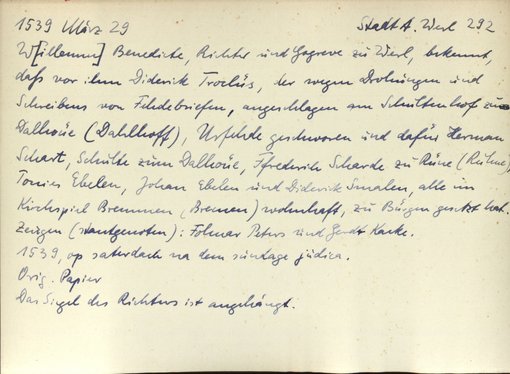 1539 März 29 Stadt A. Werl 292
W[illemm] Benedicte, Richter und Gogreve zu Werl, bekennt,
daß vor ihm Diderik Troelüs, der wegen Drohungen und
Schreibens von Fehdebriefen, angeschlagen am Schultenhof zu
Dalhoüe (Dahlhoff), Urfehde geschworen und dafür Herman
Schart, Schulte zum Dalhoüe, Ffrederich Scharde zu Rüne (Rühne),
Tonies Ebelen, Johan Ebelen und Diderik Smalen, alle im
Kirchspiel Bremmen (Bremen) wohnhaft, zu Bürgen gesetzt hat.
Zeugen (stantgenoten): Folmar Peters und Gerdt Kacke.
1539, op saterdach na dem sundage judica.
Orig. Papier
Das Siegel des Richters ist angehängt.